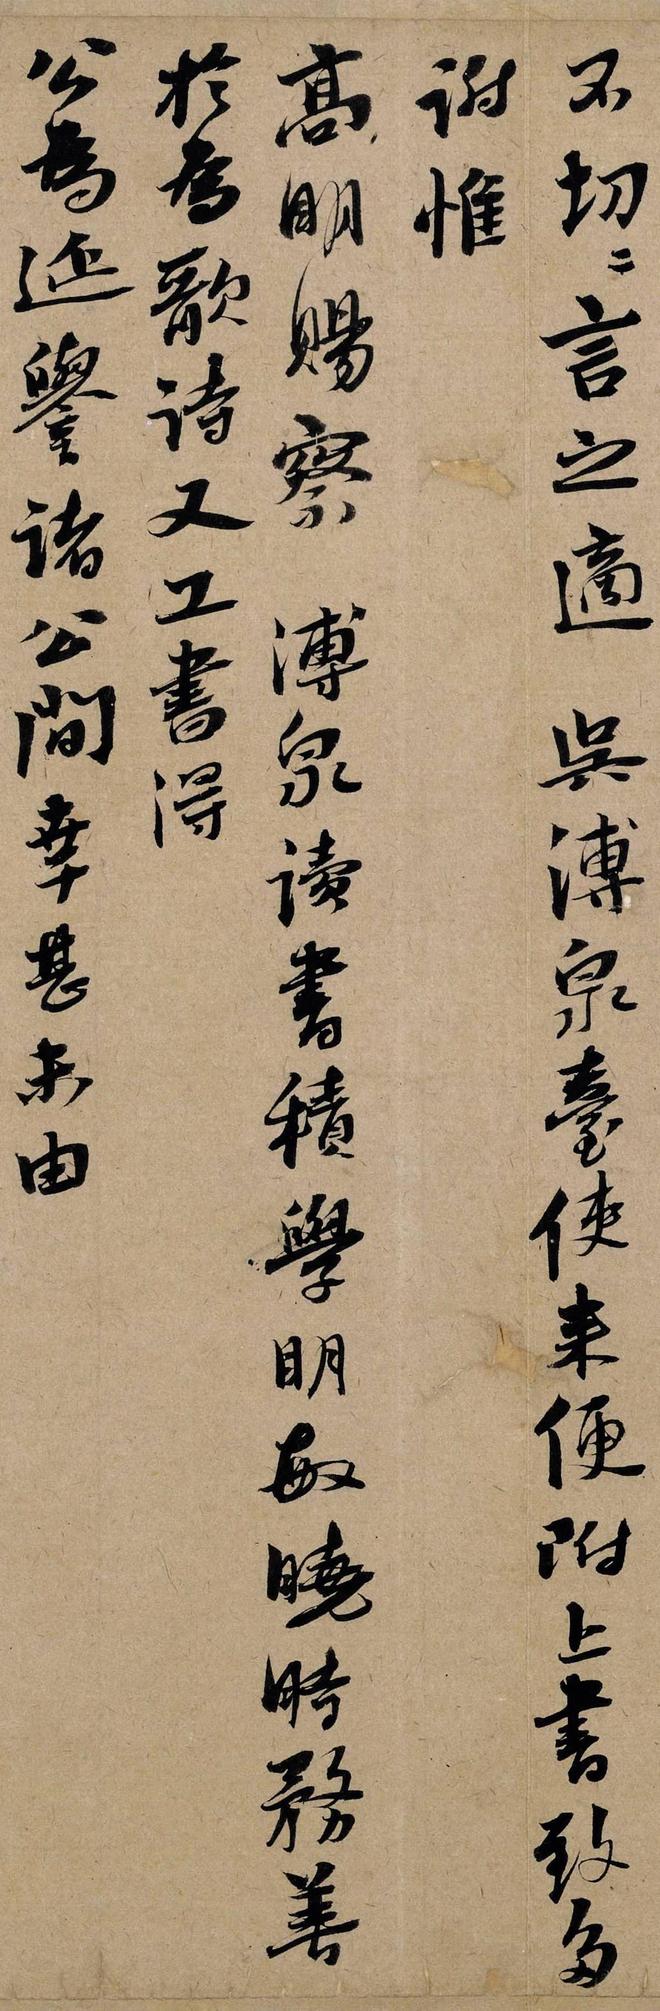 不切〻言之適 吳溥泉臺使來便附上書致多
謝惟
高明賜察 溥泉讀書積學明敏曉時務善
於為歌詩又工書得
公為延譽諸公間幸甚未由